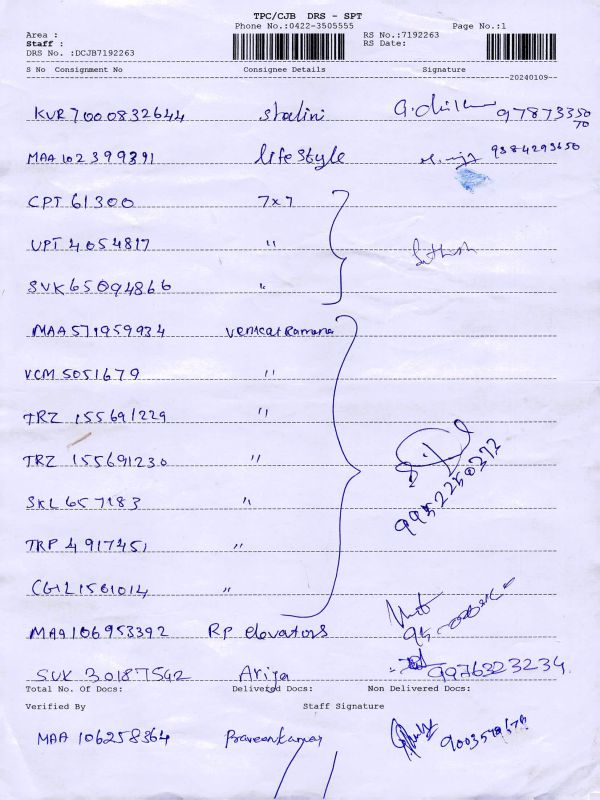 TPC/CJB DRS - SPT
Phone No.:0422-3505555 Page No.:1
Area : RS No.:7192263
Staff : RS Date:
DRS No. :DCJB7192263
S No Consignment No Consignee Details Signature
20240109
KVR7000832644 Stalini 9787335070
MAA102399391 Lifestyle 9384293650
CPT 61300 7x7
UPT 4054817 "
SVK65094866 "
MAA571959934 Venkatramana
VCM5051679 "
TRZ 155691229 "
TRZ 155691230 "
9952250272
SKL657183 "
TRP 4917451 "
CGL1501014 "
MAA106953392 RP elevators
SUK 30187542 Ariya 9976323234
Total No. Of Docs: Delivered Docs: Non Delivered Docs:
Verified By Staff Signature
MAA 106258364 Praveenkumar